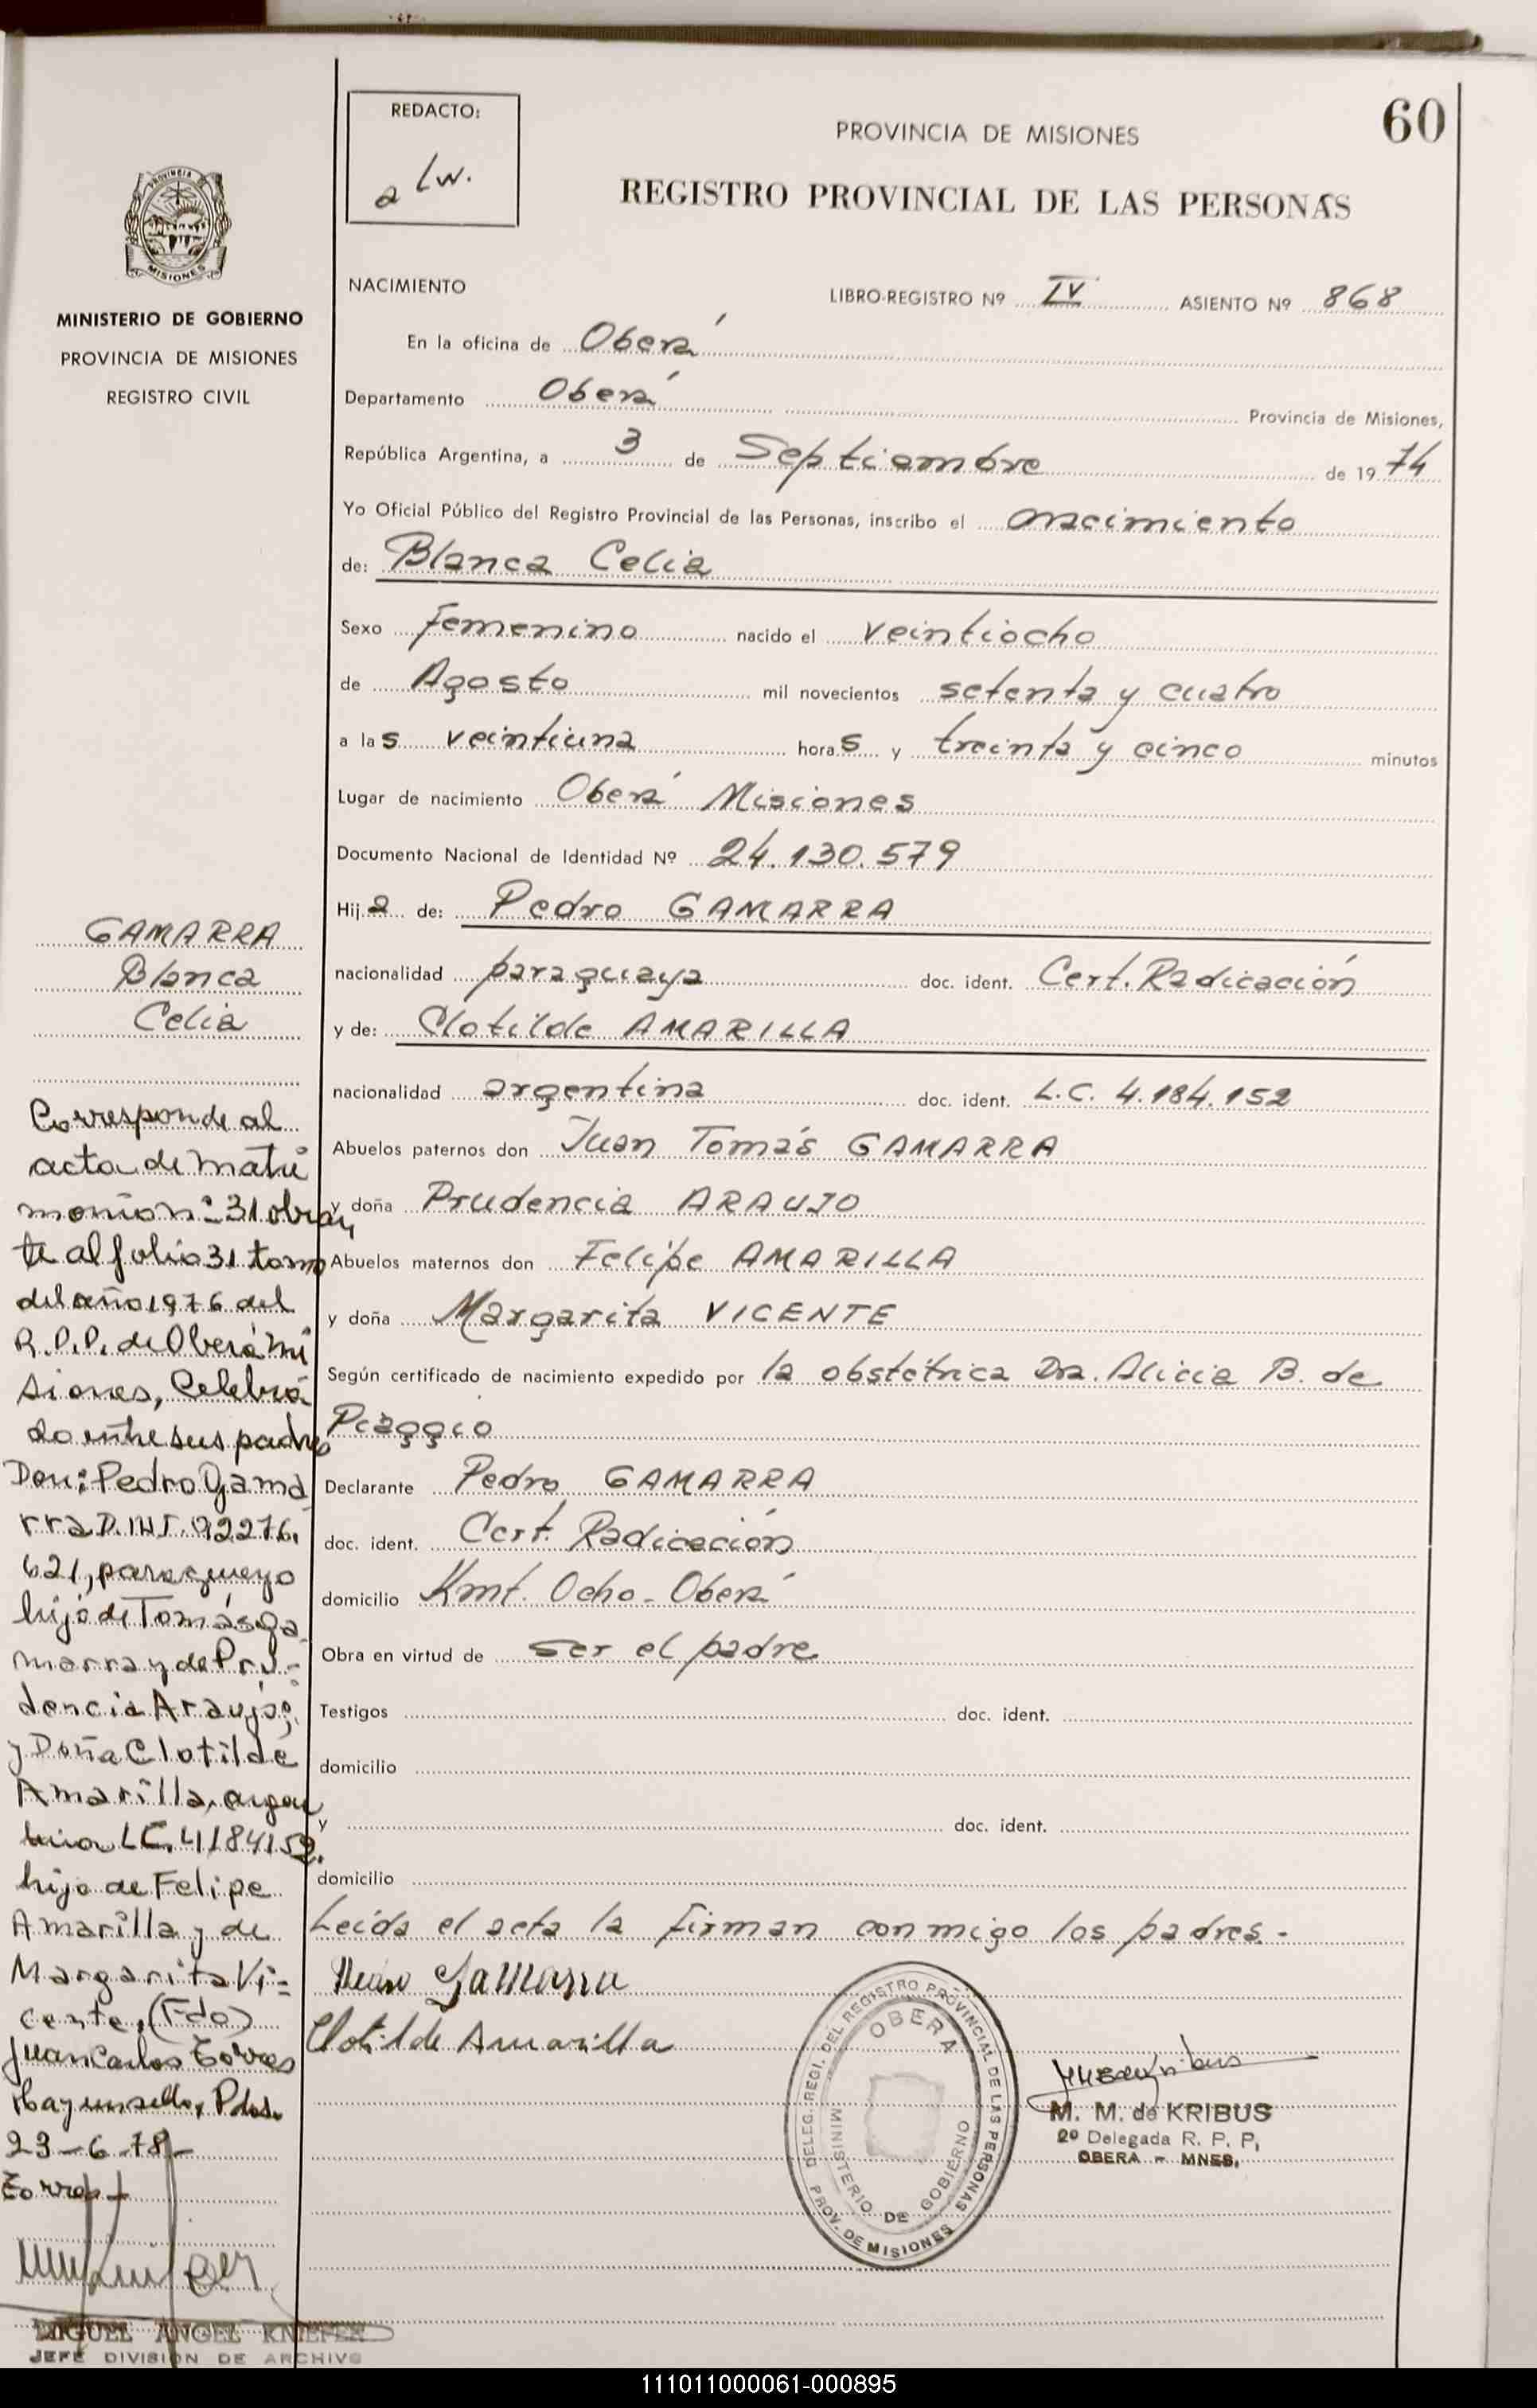 60
REDACTO:
a Lw.
PROVINCIA DE MISIONES
REGISTRO PROVINCIAL DE LAS PERSONAS
PROVINCIA
MISIONES
MINISTERIO DE GOBIERNO
PROVINCIA DE MISIONES
REGISTRO CIVIL
NACIMIENTO
LIBRO-REGISTRO Nº IV ASIENTO Nº 868
En la oficina de Oberá
Departamento Oberá Provincia de Misiones,
República Argentina, a 3 de Septiembre de 1974
Yo Oficial Público del Registro Provincial de las Personas, inscribo el nacimiento
de: Blanca Celia
Sexo Femenino nacido el veintiocho
de Agosto mil novecientos setenta y cuatro
a las veintiuna horas y treinta y cinco minutos
Lugar de nacimiento Oberá Misiones
Documento Nacional de Identidad Nº 24.130.579
Hija de: Pedro GAMARRA
nacionalidad paraguaya doc. ident. Cert. Radicación
y de: Clotilde AMARILLA
nacionalidad argentina doc. ident. L.C. 4.184.152
Abuelos paternos don Juan Tomás GAMARRA
y doña Prudencia ARAUJO
Abuelos maternos don Felipe AMARILLA
y doña Margarita VICENTE
Según certificado de nacimiento expedido por la obstétrica Dra. Alicia B. de
Piaggio
Declarante Pedro GAMARRA
doc. ident. Cert. Radicación
domicilio Kmt. Ocho - Oberá
Obra en virtud de ser el padre
Testigos doc. ident.
domicilio
y doc. ident.
domicilio
Leída el acta la firman conmigo los padres.-
Pedro Gamarra
Clotilde Amarilla
DELEG. REGI. DEL REGISTRO PROVINCIAL DE LAS PERSONAS
OBERA
MINISTERIO DE GOBIERNO
PROV. DE MISIONES
M. M. de KRIBUS
2º Delegada R. P. P.
OBERA - MNES.
GAMARRA
Blanca
Celia
Corresponde al
acta de matri
monio nº 31 obran
te al folio 31 tomo
del año 1976 del
R.P.P. de Oberá Mi
siones, Celebra
do entre sus padres
Don: Pedro Gama
rra D.N.I. 92276.
621, paraguayo
hijo de Tomás Ga
marra y de Pru-
dencia Araujo;
y Doña Clotilde
Amarilla, argen
tina L.C. 4184152.
hija de Felipe
Amarilla y de
Margarita Vi=
cente, (Fdo)
Juan Carlos Torres
Hay un sello, Pdas.
23-6-78-
Torres
MIGUEL ANGEL KNIEFER
JEFE DIVISION DE ARCHIVO
111011000061-000895